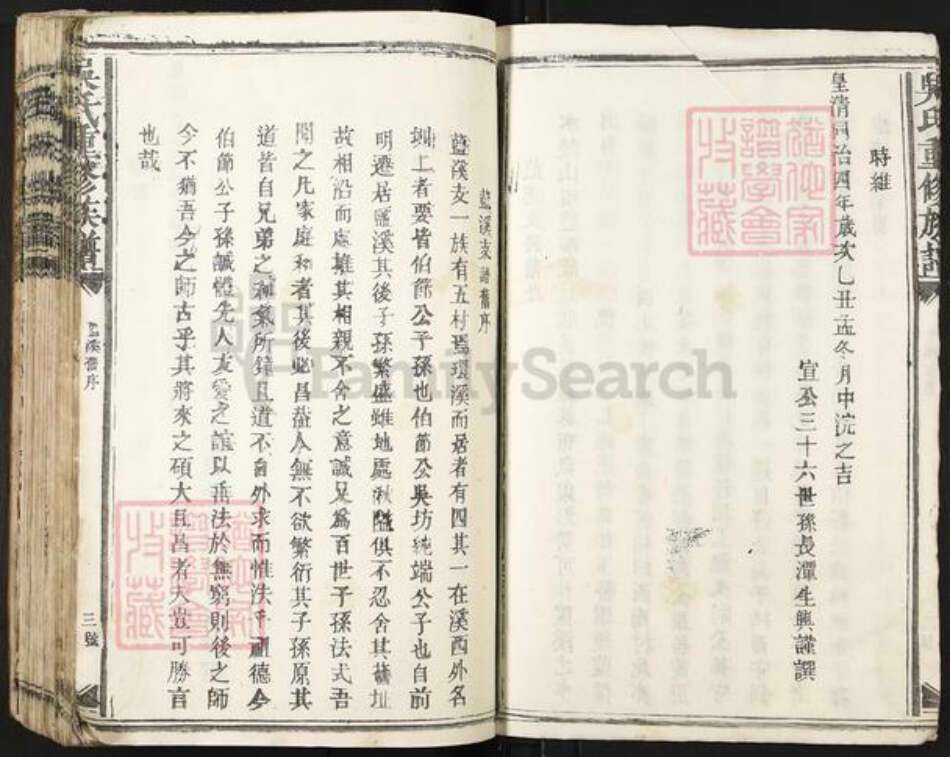 吳氏重修族譜
時維
皇清同治四年歲次乙丑孟冬月中浣之吉
宣公三十六世孫長潭生興謹譔
藍溪支譜舊序
藍溪支一族有五村焉環溪而居者有四其一在溪西外名
工者要皆伯節公子孫也伯節公吳坊統端公子也自前
明遷居藍溪其後子孫繁盛雖地處湫隘俱不忍舍其舊址
故相沿而處堆其相親不舍之意誠足為百世子孫法式吾
聞之凡家庭和者其後必昌蓋人無不欲繁衍其子孫原其
道皆自兄弟之和氣所鍾且道不自外求而惟法乎祖德今
伯節公子孫誠體先人友愛之誼以垂法於無窮則後之師
今不猶吾今之師古乎其將來之碩大且昌者夫豈可勝言
也哉
吳氏重修族譜
藍溪舊序
三號
FamilySearch